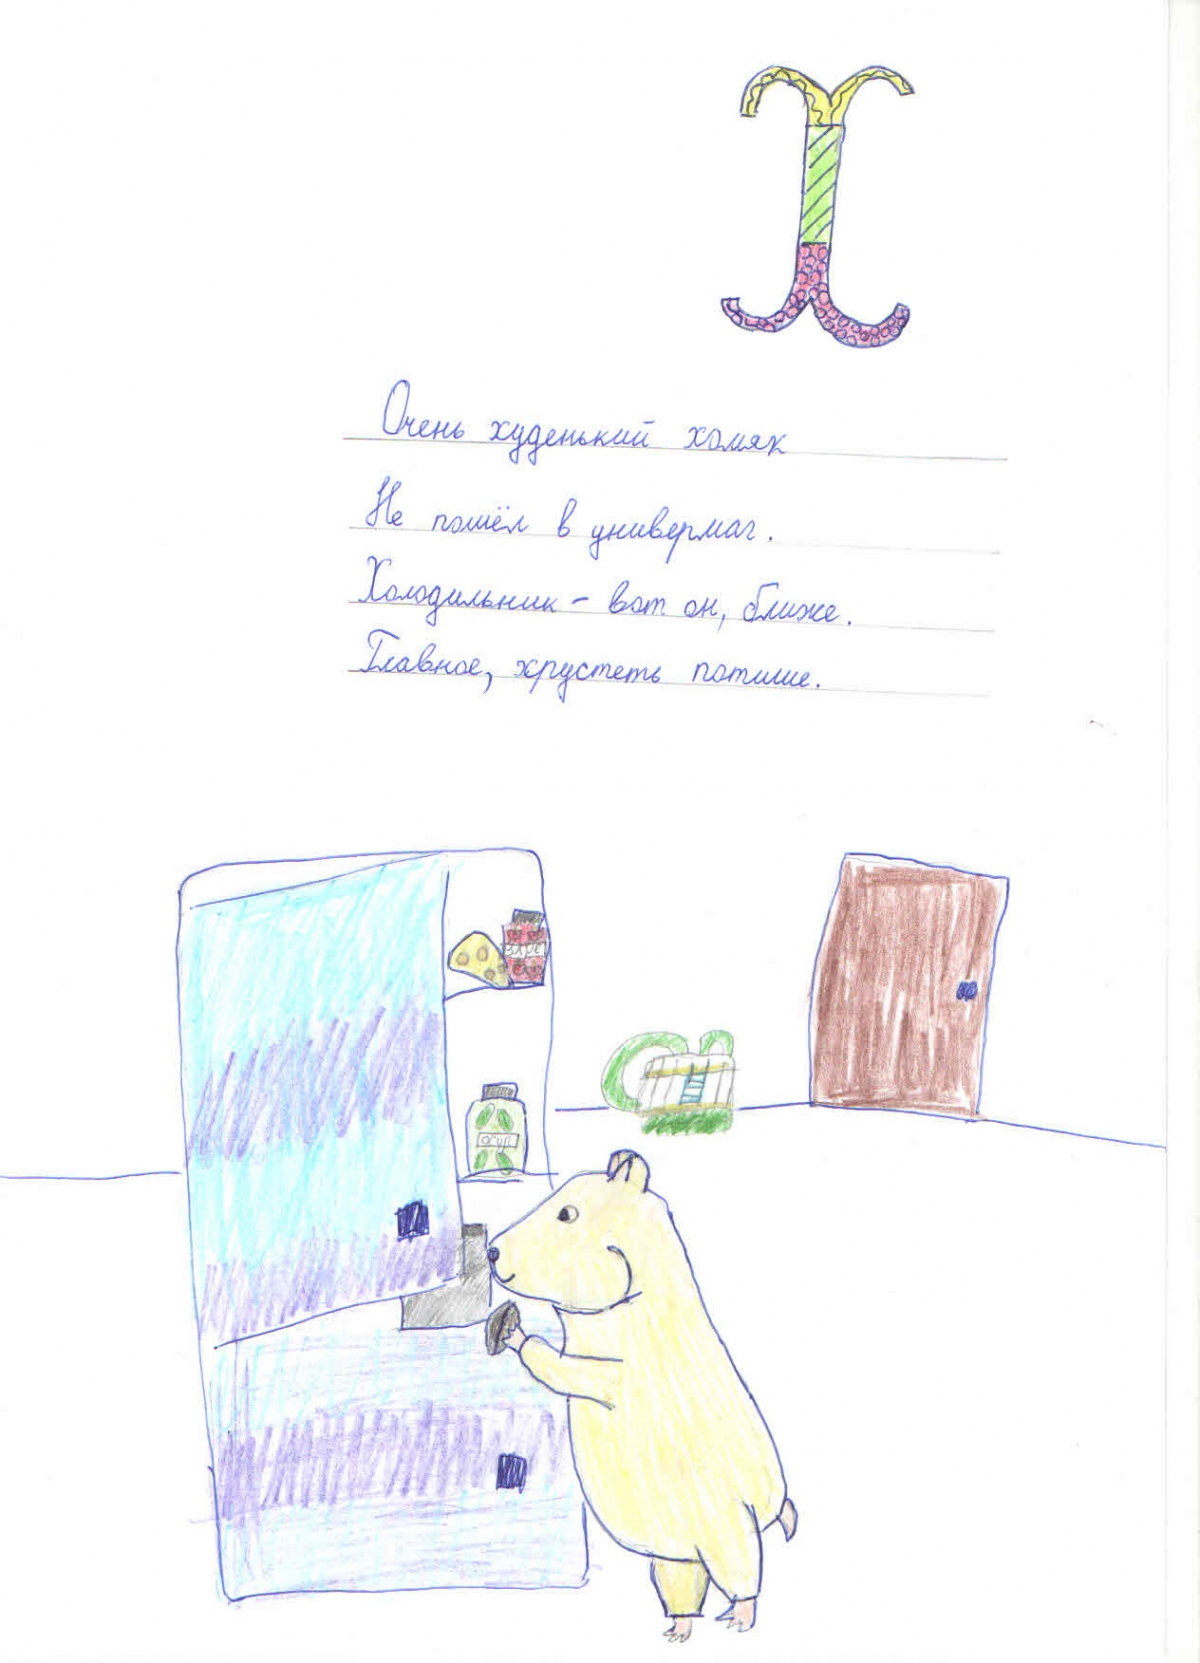 Х
Очень худенький хомяк
Не пошёл в универмаг.
Холодильник - вот он, ближе.
Главное, хрустеть потише.